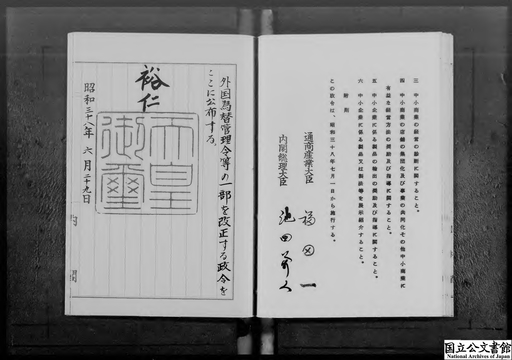 三 中小商業の経営の診断に関すること。
四 中小商業の店舗の集団化及び事業の共同化その他中小商業に
有益な経営方法の奨励及び指導に関すること。
五 中小企業に係る製品の輸出の奨励及び指導に関すること。
六 中小企業に係る製品又は技術等を展示紹介すること。
附 則
この政令は、昭和三十八年七月一日から施行する。
通商産業大臣 福田 一
内閣総理大臣 池田勇人
外国為替管理令等の一部を改正する政令を
ここに公布する。
裕仁
天皇
御璽
昭和三十八年 六月二十九日
国立公文書館
National Archives of Japan